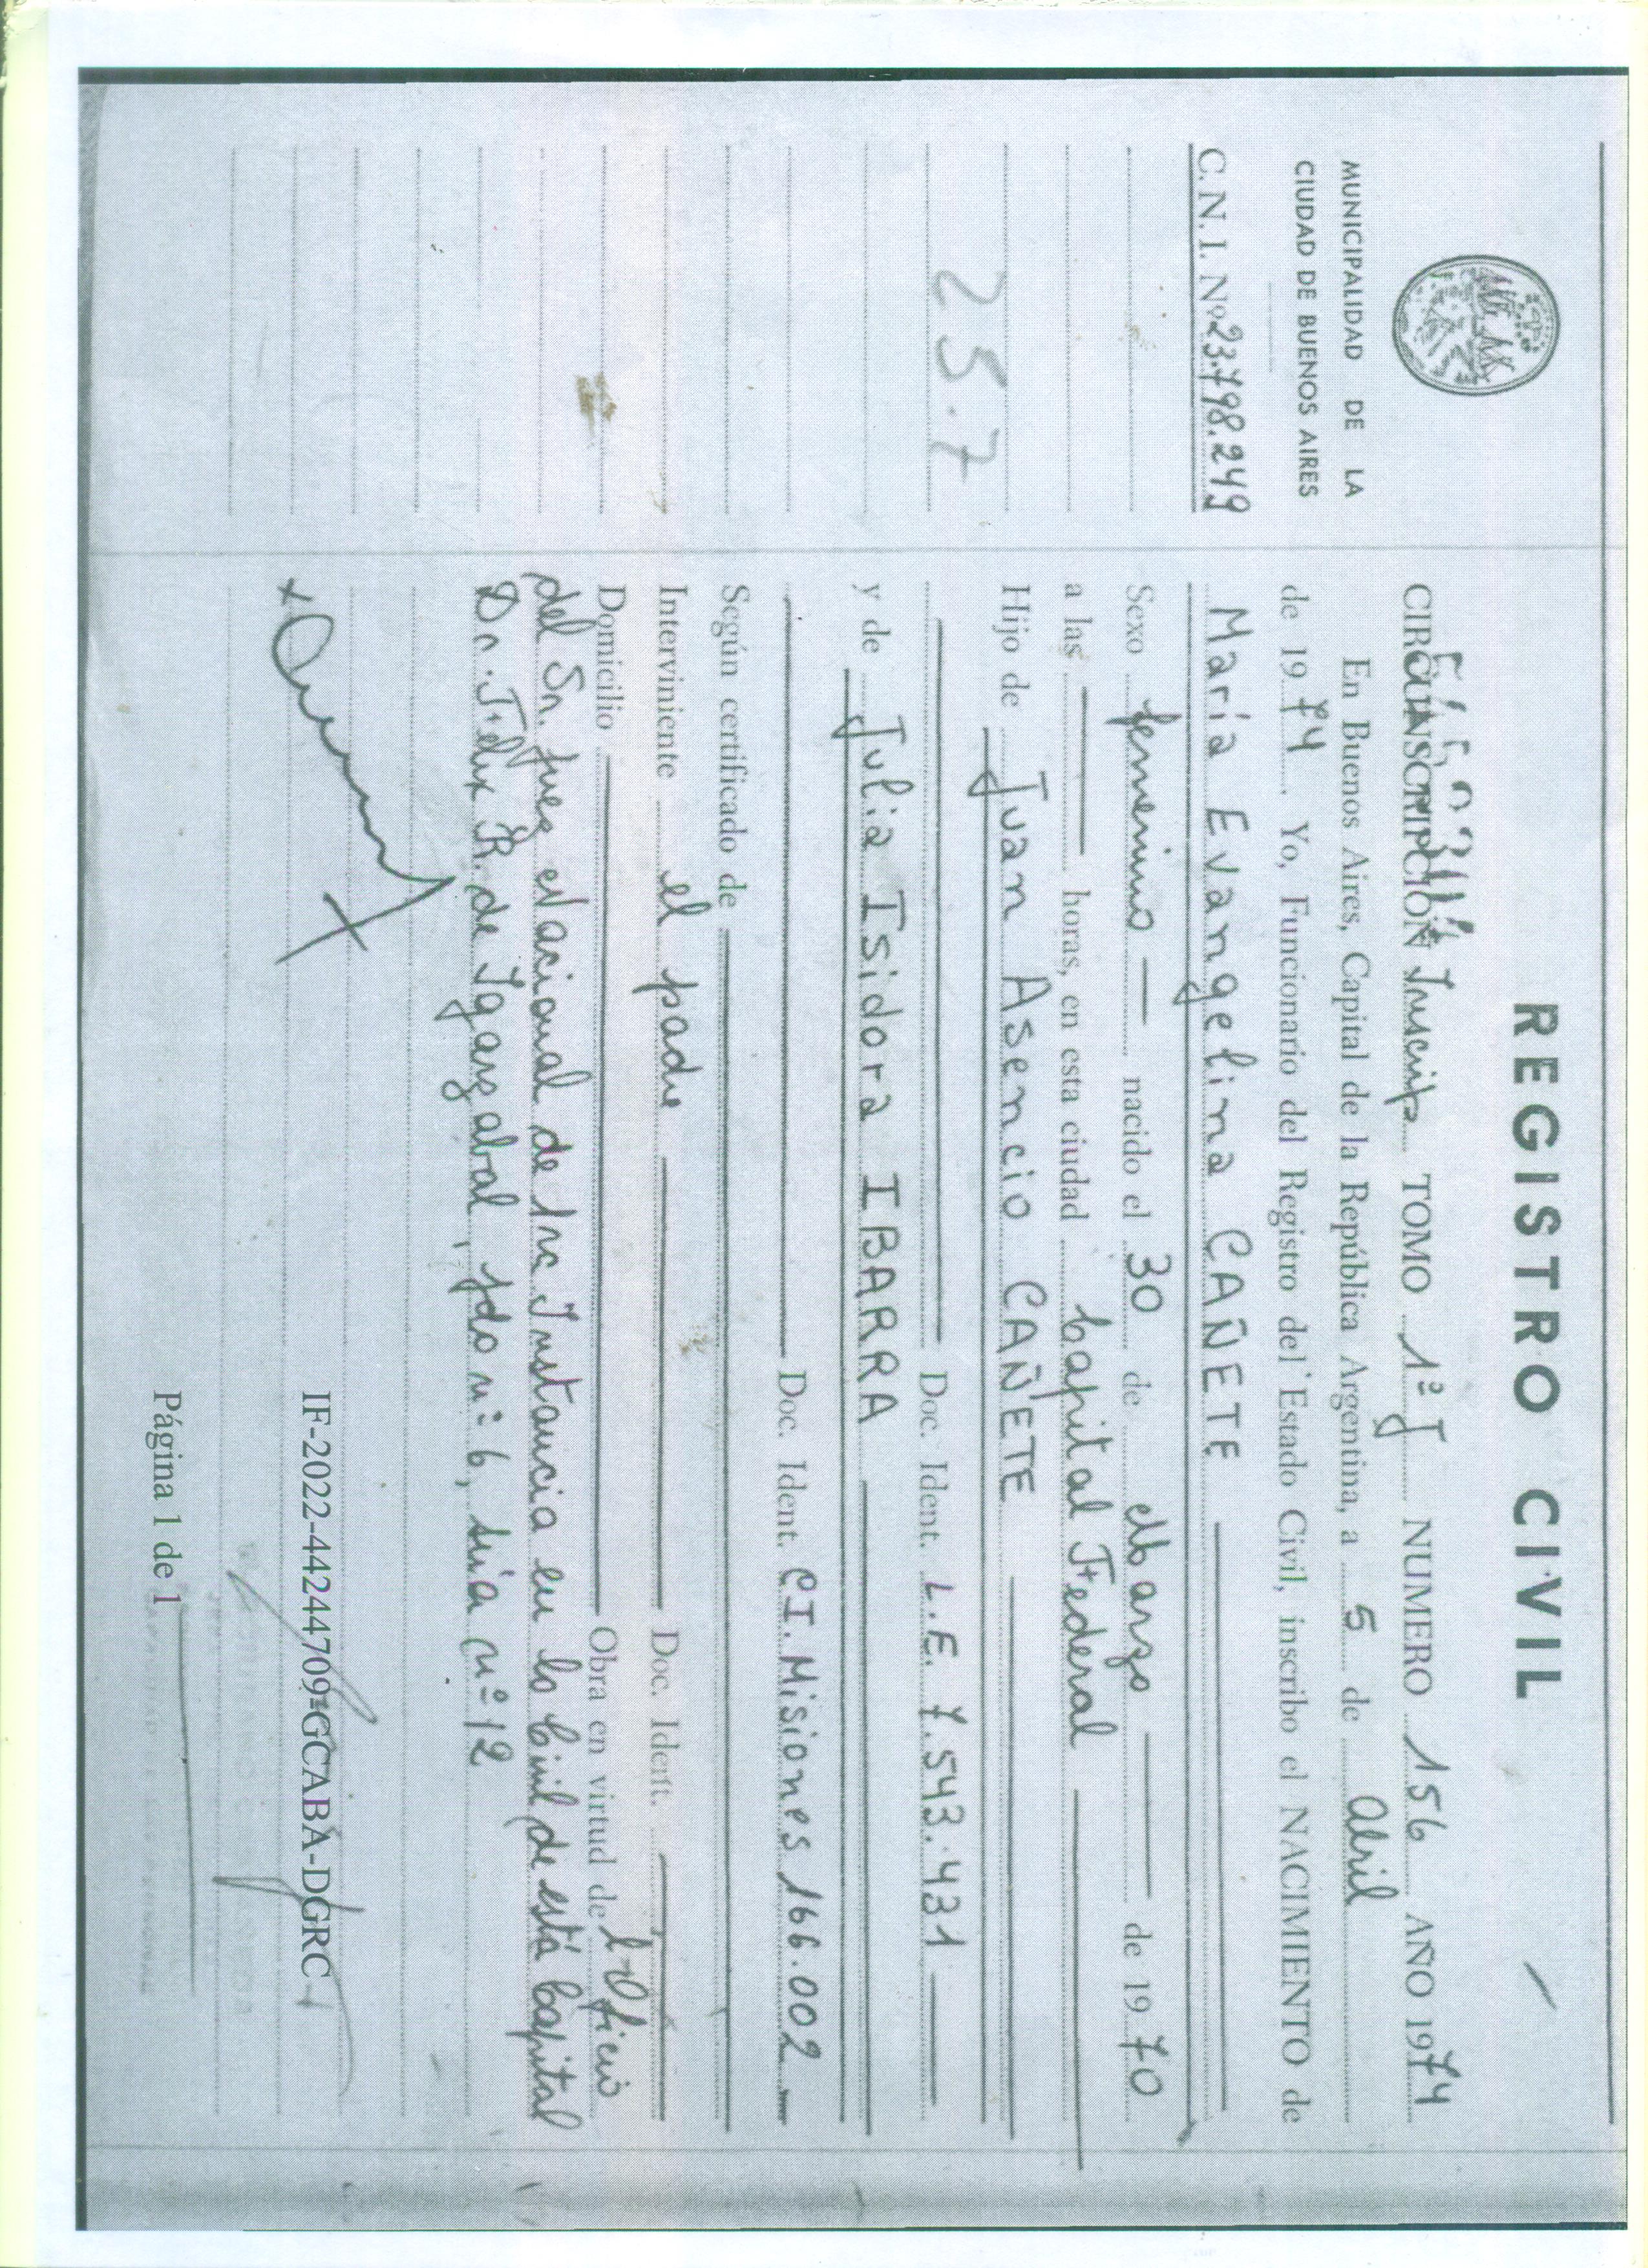 REGISTRO CIVIL
MUNICIPALIDAD DE LA
CIUDAD DE BUENOS AIRES
C.N.I. Nº 23.798.249
25.7
CIRCUNSCRIPCIÓN TOMO 1º J NUMERO 156 AÑO 1974
En Buenos Aires, Capital de la República Argentina, a 5 de Abril
de 1974. Yo, Funcionario del Registro del Estado Civil, inscribo el NACIMIENTO de
María Evangelina CAÑETE
Sexo femenino nacido el 30 de Marzo de 1970
a las horas, en esta ciudad Capital Federal
Hijo de Juan Asencio CAÑETE
Doc. Ident. L.E. 7.543.431
y de Julia Isidora IBARRA
Doc. Ident. CI. Misiones 166.002
Según certificado de
Interviniente el padre Doc. Ident.
Domicilio Obra en virtud de Oficio
del Sr. Juez Nacional de 1ra Instancia en lo Civil de está Capital
Dr. Félix R. de Igarzabal, Jdo nº 6, nº 12
IF-2022-44244709-GCABA-DGRC
Página 1 de 1